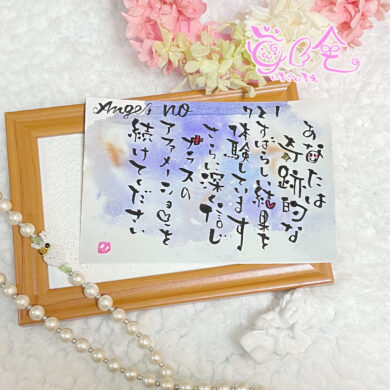 あなたは
奇跡的な
すばらしい結果を
体験しています
さらに深く信じ
プラスの
アファメーションを
続けてください
Angel's
no